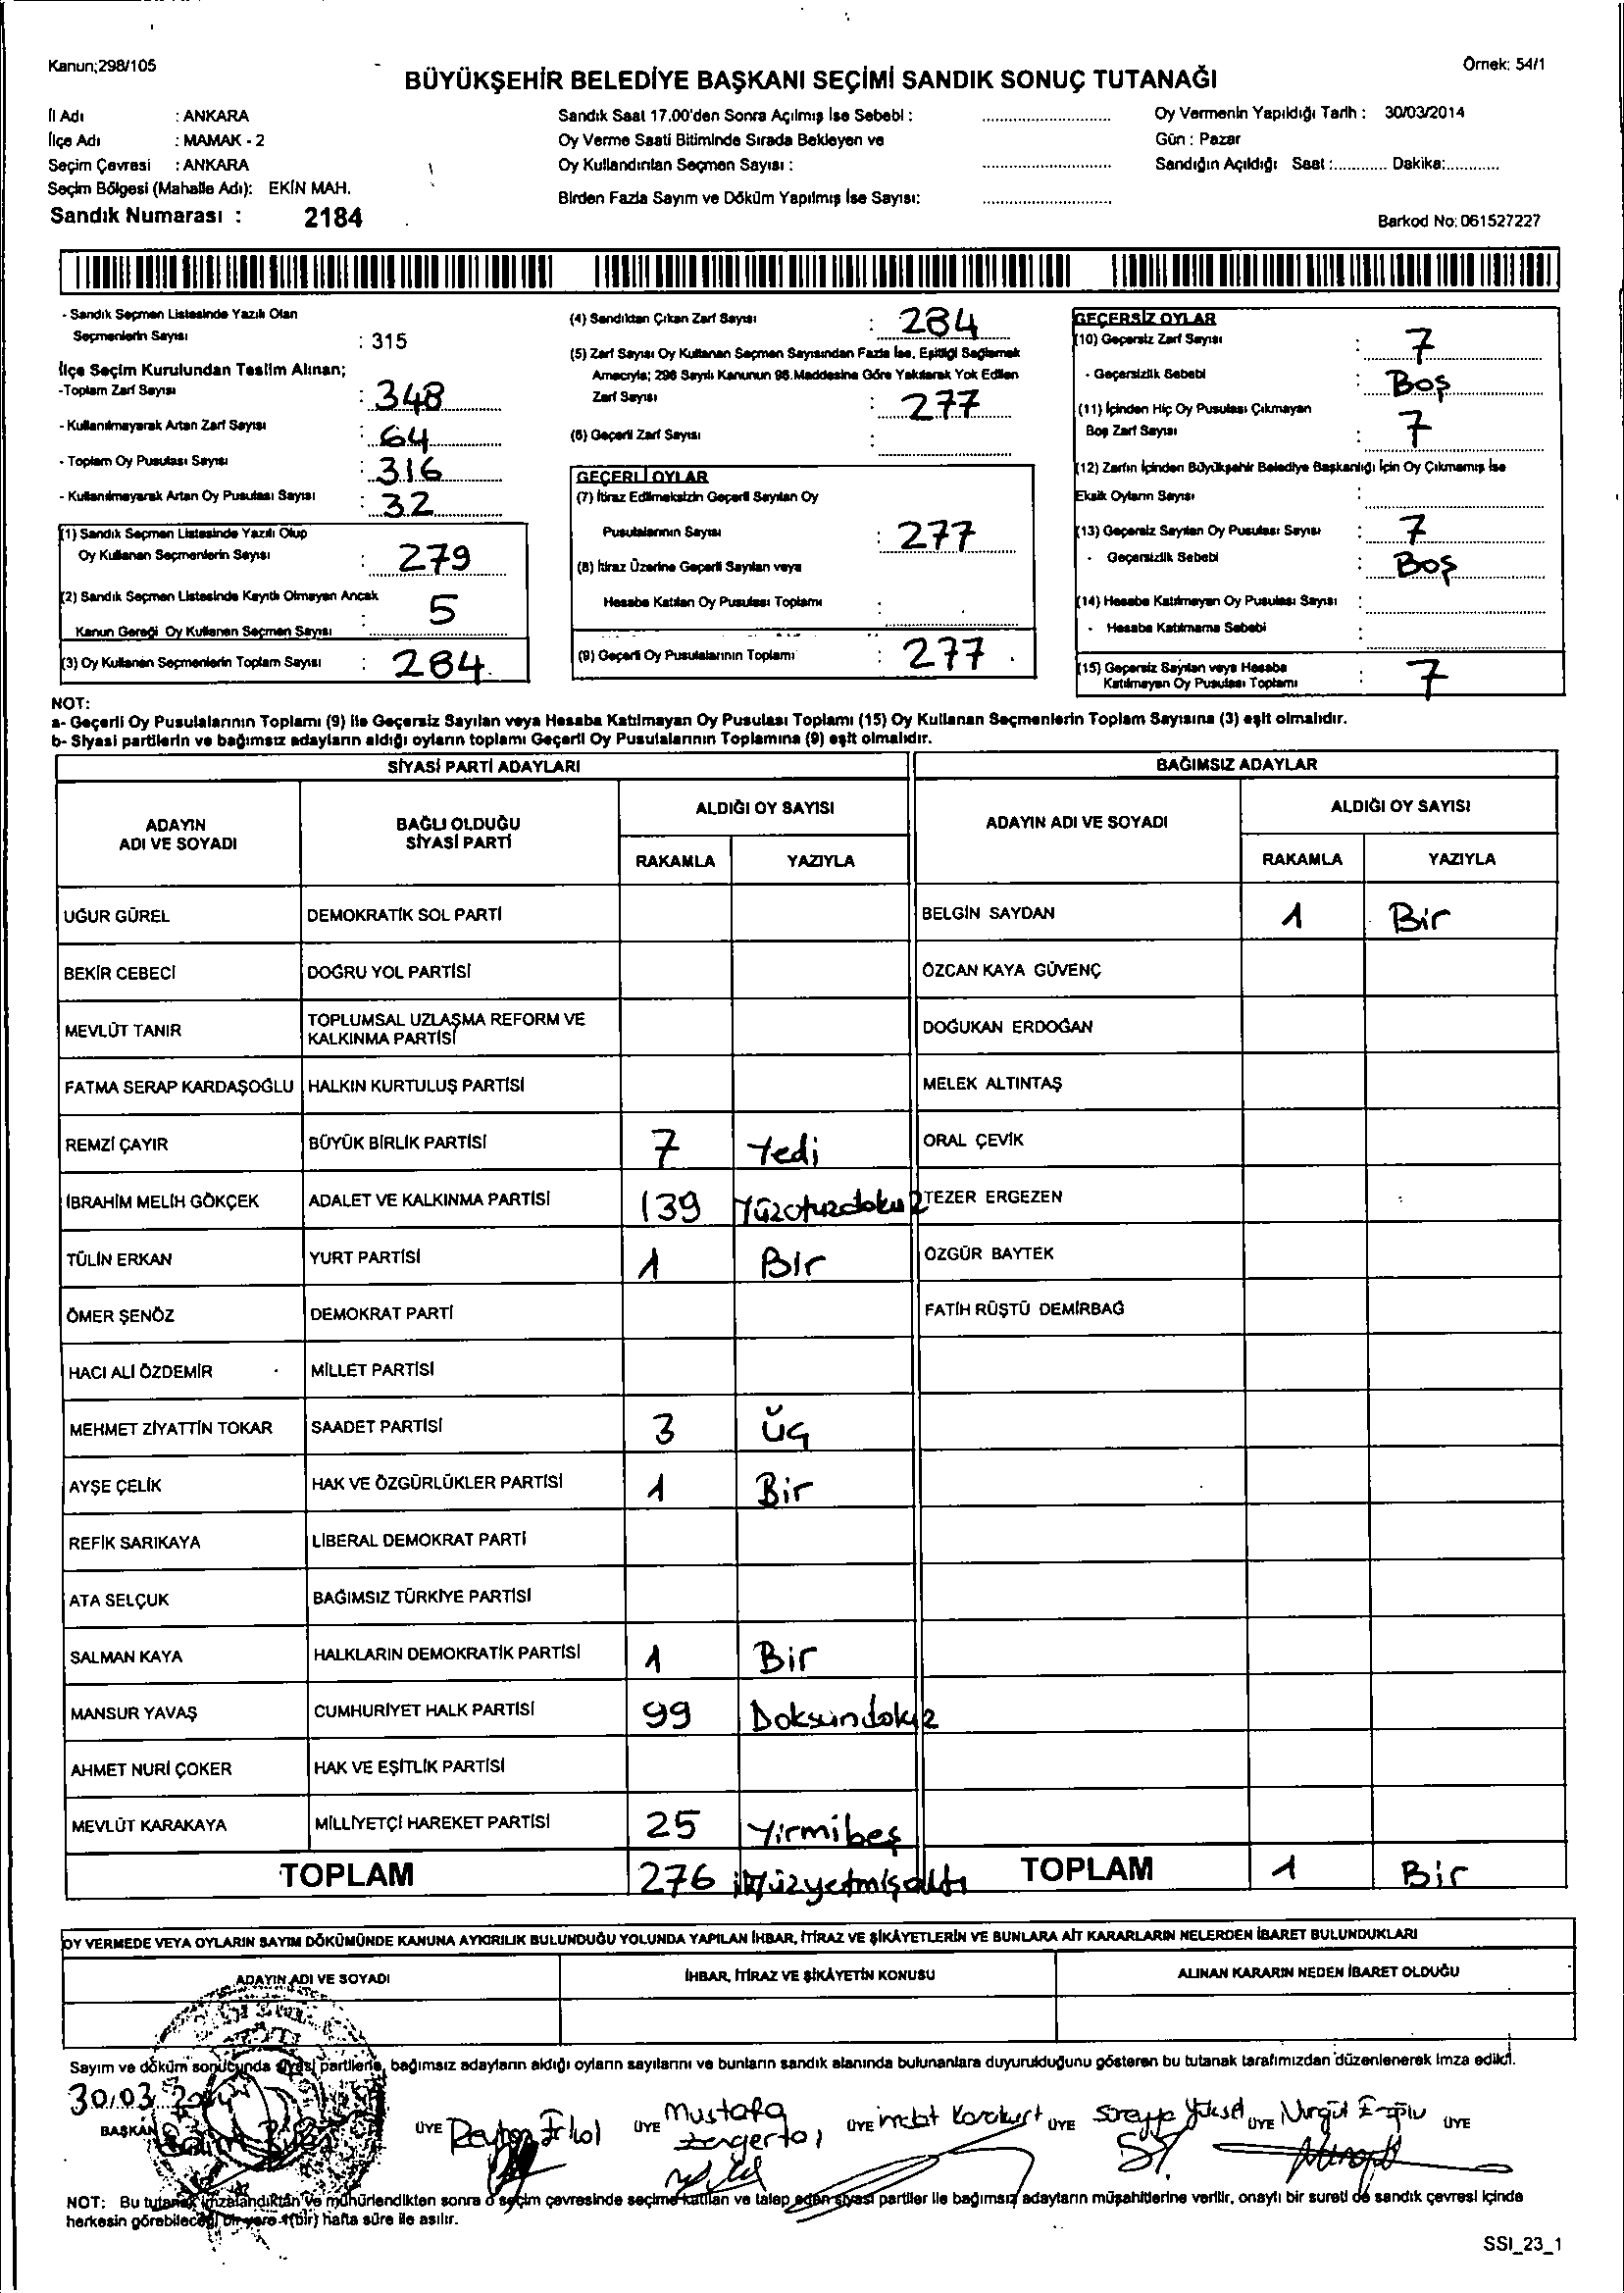 Kanun;298/105
Örnek: 54/1
BÜYÜKŞEHİR BELEDİYE BAŞKANI SEÇİMİ SANDIK SONUÇ TUTANAĞI
İl Adı : ANKARA
İlçe Adı : MAMAK - 2
Seçim Çevresi : ANKARA
Seçim Bölgesi (Mahalle Adı): EKİN MAH.
Sandık Numarası : 2184
Sandık Saat 17.00'den Sonra Açılmış İse Sebebi :
Oy Verme Saati Bitiminde Sırada Bekleyen ve
Oy Kullandırılan Seçmen Sayısı :
Birden Fazla Sayım ve Döküm Yapılmış İse Sayısı:
Oy Vermenin Yapıldığı Tarih : 30/03/2014
Gün : Pazar
Sandığın Açıldığı Saat :............. Dakika:.............
Barkod No: 061527227
- Sandık Seçmen Listesinde Yazılı Olan
Seçmenlerin Sayısı : 315
İlçe Seçim Kurulundan Teslim Alınan;
-Toplam Zarf Sayısı : 348
- Kullanılmayarak Artan Zarf Sayısı : 64
- Toplam Oy Pusulası Sayısı : 316
- Kullanılmayarak Artan Oy Pusulası Sayısı : 32
(1) Sandık Seçmen Listesinde Yazılı Olup
Oy Kullanan Seçmenlerin Sayısı : 279
(2) Sandık Seçmen Listesinde Kayıtlı Olmayan Ancak
Kanun Gereği Oy Kullanan Seçmen Sayısı : 5
(3) Oy Kullanan Seçmenlerin Toplam Sayısı : 284
(4) Sandıktan Çıkan Zarf Sayısı : 284
(5) Zarf Sayısı Oy Kullanan Seçmen Sayısından Fazla İse, Eşitliği Sağlamak
Amacıyla; 298 Sayılı Kanunun 98.Maddesine Göre Yakılarak Yok Edilen
Zarf Sayısı : 277
(6) Geçerli Zarf Sayısı :
GEÇERLİ OYLAR
(7) İtiraz Edilmeksizin Geçerli Sayılan Oy
Pusulalarının Sayısı : 277
(8) İtiraz Üzerine Geçerli Sayılan veya
Hesaba Katılan Oy Pusulası Toplamı :
(9) Geçerli Oy Pusulalarının Toplamı : 277
GEÇERSİZ OYLAR
(10) Geçersiz Zarf Sayısı : 7
- Geçersizlik Sebebi : Boş
(11) İçinden Hiç Oy Pusulası Çıkmayan
Boş Zarf Sayısı : 7
(12) Zarfın İçinden Büyükşehir Belediye Başkanlığı İçin Oy Çıkmamış İse
Eksik Oyların Sayısı
(13) Geçersiz Sayılan Oy Pusulası Sayısı : 7
- Geçersizlik Sebebi : Boş
(14) Hesaba Katılmayan Oy Pusulası Sayısı :
- Hesaba Katılmama Sebebi :
(15) Geçersiz Sayılan veya Hesaba
Katılmayan Oy Pusulası Toplamı : 7
NOT:
a- Geçerli Oy Pusulalarının Toplamı (9) ile Geçersiz Sayılan veya Hesaba Katılmayan Oy Pusulası Toplamı (15) Oy Kullanan Seçmenlerin Toplam Sayısına (3) eşit olmalıdır.
b- Siyasi partilerin ve bağımsız adayların aldığı oyların toplamı Geçerli Oy Pusulalarının Toplamına (9) eşit olmalıdır.
SİYASİ PARTİ ADAYLARI
BAĞIMSIZ ADAYLAR
ADAYIN ADI VE SOYADI
BAĞLI OLDUĞU SİYASİ PARTİ
ALDIĞI OY SAYISI
RAKAMLA YAZIYLA
ADAYIN ADI VE SOYADI
ALDIĞI OY SAYISI
RAKAMLA YAZIYLA
UĞUR GÜREL DEMOKRATİK SOL PARTİ BELGİN SAYDAN 1 Bir
BEKİR CEBECİ DOĞRU YOL PARTİSİ ÖZCAN KAYA GÜVENÇ
MEVLÜT TANIR TOPLUMSAL UZLAŞMA REFORM VE KALKINMA PARTİSİ DOĞUKAN ERDOĞAN
FATMA SERAP KARDAŞOĞLU HALKIN KURTULUŞ PARTİSİ MELEK ALTINTAŞ
REMZİ ÇAYIR BÜYÜK BİRLİK PARTİSİ 7 Yedi ORAL ÇEVİK
İBRAHİM MELİH GÖKÇEK ADALET VE KALKINMA PARTİSİ 139 Yüzotuzdokuz TEZER ERGEZEN
TÜLİN ERKAN YURT PARTİSİ 1 Bir ÖZGÜR BAYTEK
ÖMER ŞENÖZ DEMOKRAT PARTİ FATİH RÜŞTÜ DEMİRBAĞ
HACI ALİ ÖZDEMİR MİLLET PARTİSİ
MEHMET ZİYATTİN TOKAR SAADET PARTİSİ 3 Üç
AYŞE ÇELİK HAK VE ÖZGÜRLÜKLER PARTİSİ 1 Bir
REFİK SARIKAYA LİBERAL DEMOKRAT PARTİ
ATA SELÇUK BAĞIMSIZ TÜRKİYE PARTİSİ
SALMAN KAYA HALKLARIN DEMOKRATİK PARTİSİ 1 Bir
MANSUR YAVAŞ CUMHURİYET HALK PARTİSİ 99 Doksandokuz
AHMET NURİ ÇOKER HAK VE EŞİTLİK PARTİSİ
MEVLÜT KARAKAYA MİLLİYETÇİ HAREKET PARTİSİ 25 Yirmibeş
TOPLAM 276 ikiyüzyetmişaltı TOPLAM 1 Bir
OY VERMEDE VEYA OYLARIN SAYIM DÖKÜMÜNDE KANUNA AYKIRILIK BULUNDUĞU YOLUNDA YAPILAN İHBAR, İTİRAZ VE ŞİKÂYETLERİN VE BUNLARA AİT KARARLARIN NELERDEN İBARET BULUNDUKLARI
ADAYIN ADI VE SOYADI İHBAR, İTİRAZ VE ŞİKÂYETİN KONUSU ALINAN KARARIN NEDEN İBARET OLDUĞU
Sayım ve döküm sonucunda siyasi partilerle, bağımsız adayların aldığı oyların sayılarını ve bunların sandık alanında bulunanlara duyurulduğunu gösteren bu tutanak tarafımızdan düzenlenerek imza edildi.
30/03/2014
BAŞKAN ÜYE ÜYE Mustafa ÜYE ÜYE ÜYE Nurgül ÜYE
NOT: Bu tutanak imzalandıktan ve mühürlendikten sonra o seçim çevresinde seçime katılan ve talep eden siyasi partiler ile bağımsız adayların müşahitlerine verilir, onaylı bir sureti de sandık çevresi içinde
herkesin görebileceği bir yere 1(bir) hafta süre ile asılır.
SSI_23_1